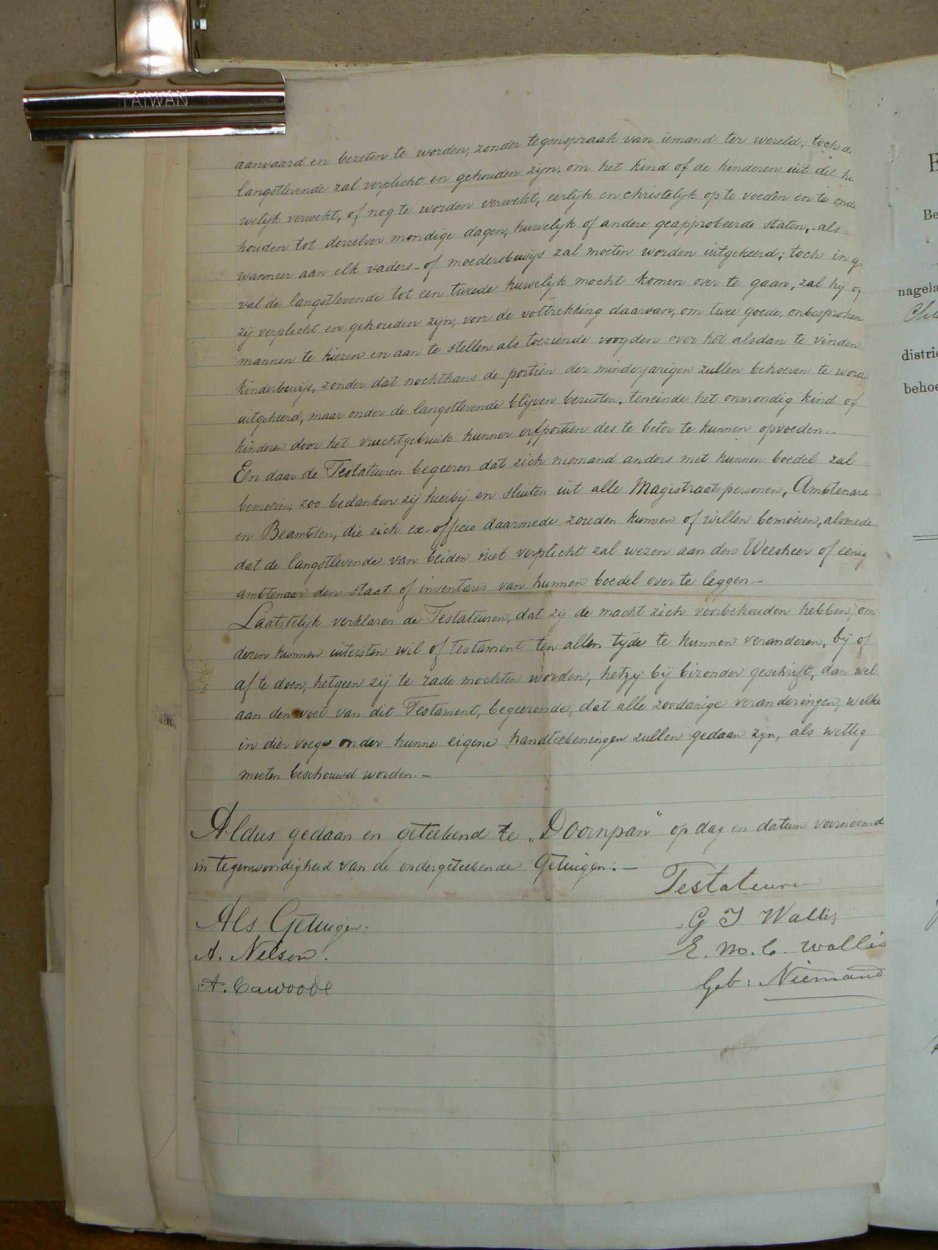 TAIWAN
aanvaard en bezeten te worden, zonder tegenspraak van iemand ter wereld; toch d
langstlevende zal verplicht en gehouden zijn, om het kind of de kinderen uit dit hu
welijk verwekt, of nog te worden verwekt, eerlijk en christelijk op te voeden en te onde
houden tot derzelver mondige dagen, huwelijk of andere geapprobeerde staten, als
wanneer aan elk vaders- of moedersbewijs zal moeten worden uitgekeerd; toch in g
val de langstlevende tot een tweede huwelijk mocht komen over te gaan, zal hij of
zij verplicht en gehouden zijn, voor de voltrekking daarvan, om twee goede, onbesproken
mannen te kiezen en aan te stellen als toeziende voogden over het alsdan te vinden
kinderbewijs, zonder dat nochthans de portien der minderjarigen zullen behoeren te word
uitgekeerd, maar onder de langstlevende blijven berusten, teneinde het onmondig kind of
kinderen door het vruchtgebruik hunner erfportien des te beter te kunnen opvoeden.
En daar de Testateuren begeeren dat zich niemand anders met hunnen boedel zal
bemoeien, zoo bedanken zij hierbij en sluiten uit alle Magistraatspersonen, Ambtenare
en Beambten, die zich ex-officio daarmede zouden kunnen of willen bemoeien, alsmede
dat de langstlevende van beiden niet verplicht zal wezen aan den Weesheer of eenig
ambtenaar den staat of inventaris van hunnen boedel over te leggen.—
Laatstelijk verklaren de Testateuren, dat zij de macht zich voorbehouden hebben, om
dezen hunnen uitersten wil of testament ten allen tijde te kunnen veranderen, bij of
af te doen, hetgeen zij te rade mochten worden, hetzij bij bizonder geschrift, dan wel
aan den voet van dit Testament, begeerende, dat alle zoodanige veranderingen, welke
in dier voege onder hunne eigene handteekeningen zullen gedaan zijn, als wettig
moeten beschouwd worden.—
Aldus gedaan en geteekend te „Doornpan" op dag en datum voornoemd
in tegenwoordigheid van de ondergeteekende Getuigen.—
Testateuren
Als Getuigen:
G J Wallis
A. Nelson.
E. M. C. Wallis
A. Cawoode
Geb: Niemand
Be
nagela
distric
behoe